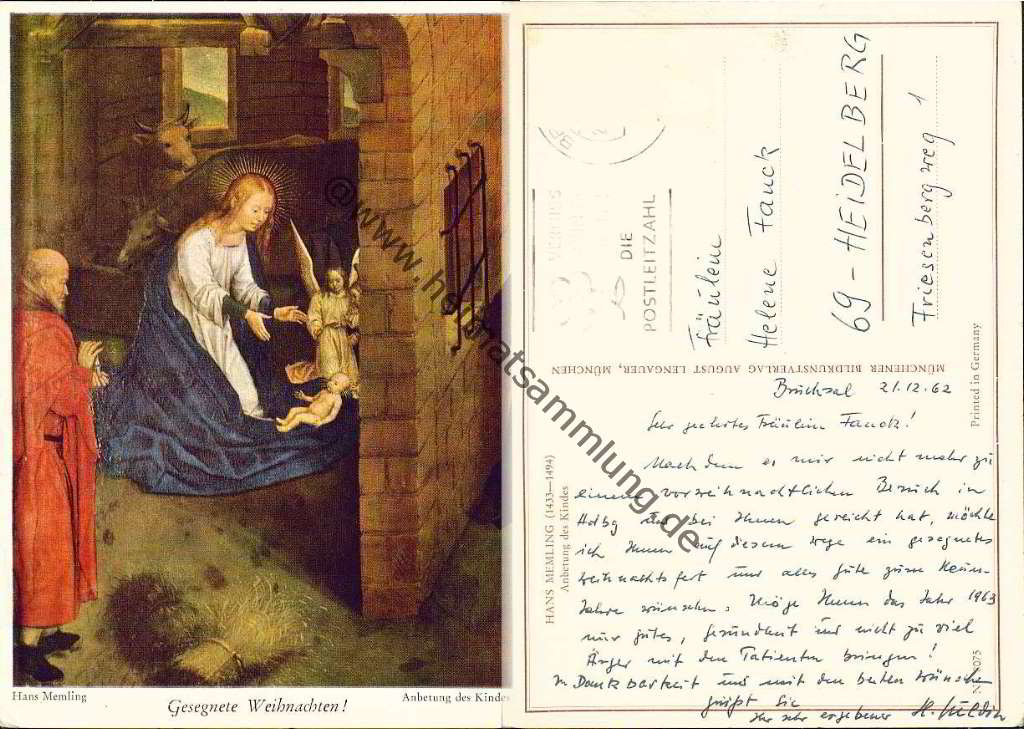 Hans Memling
Gesegnete Weihnachten!
Anbetung des Kindes
@www.heimatsammlung.de
DIE
POSTLEITZAHL
Fräulein
Helene Fauck
69 - HEIDELBERG
Friesenbergweg 1
MÜNCHENER BILDKUNSTVERLAG AUGUST LENGAUER, MÜNCHEN
Printed in Germany
HANS MEMLING (1433—1494)
Anbetung des Kindes
Bruchsal 21.12.62
Sehr geehrtes Fräulein Fauck!
Nachdem es mir nicht mehr zu
einem vorweihnachtlichen Besuch in
Hdbg bei Ihnen gereicht hat, möchte
ich Ihnen auf diesem Wege ein gesegnetes
Weihnachtsfest und alles Gute zum Neuen
Jahre wünschen. Möge Ihnen das Jahr 1963
nur gutes, Gesundheit und nicht zu viel
Ärger mit den Patienten bringen!
In Dankbarkeit und mit den besten Wünschen
grüßt Sie
Ihr sehr ergebener H.